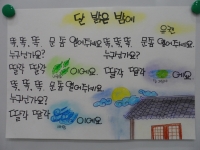 달 밝은 밤에
똑, 똑, 똑 문 좀 열어주세요
누구신가요?
딸각 딸각 이에요
똑, 똑, 똑 문 좀 열어주세요
누구신가요?
딸각 딸각 이에요
똑, 똑, 똑 문 좀 열어주세요
누구신가요?
딸각 딸각 이에요